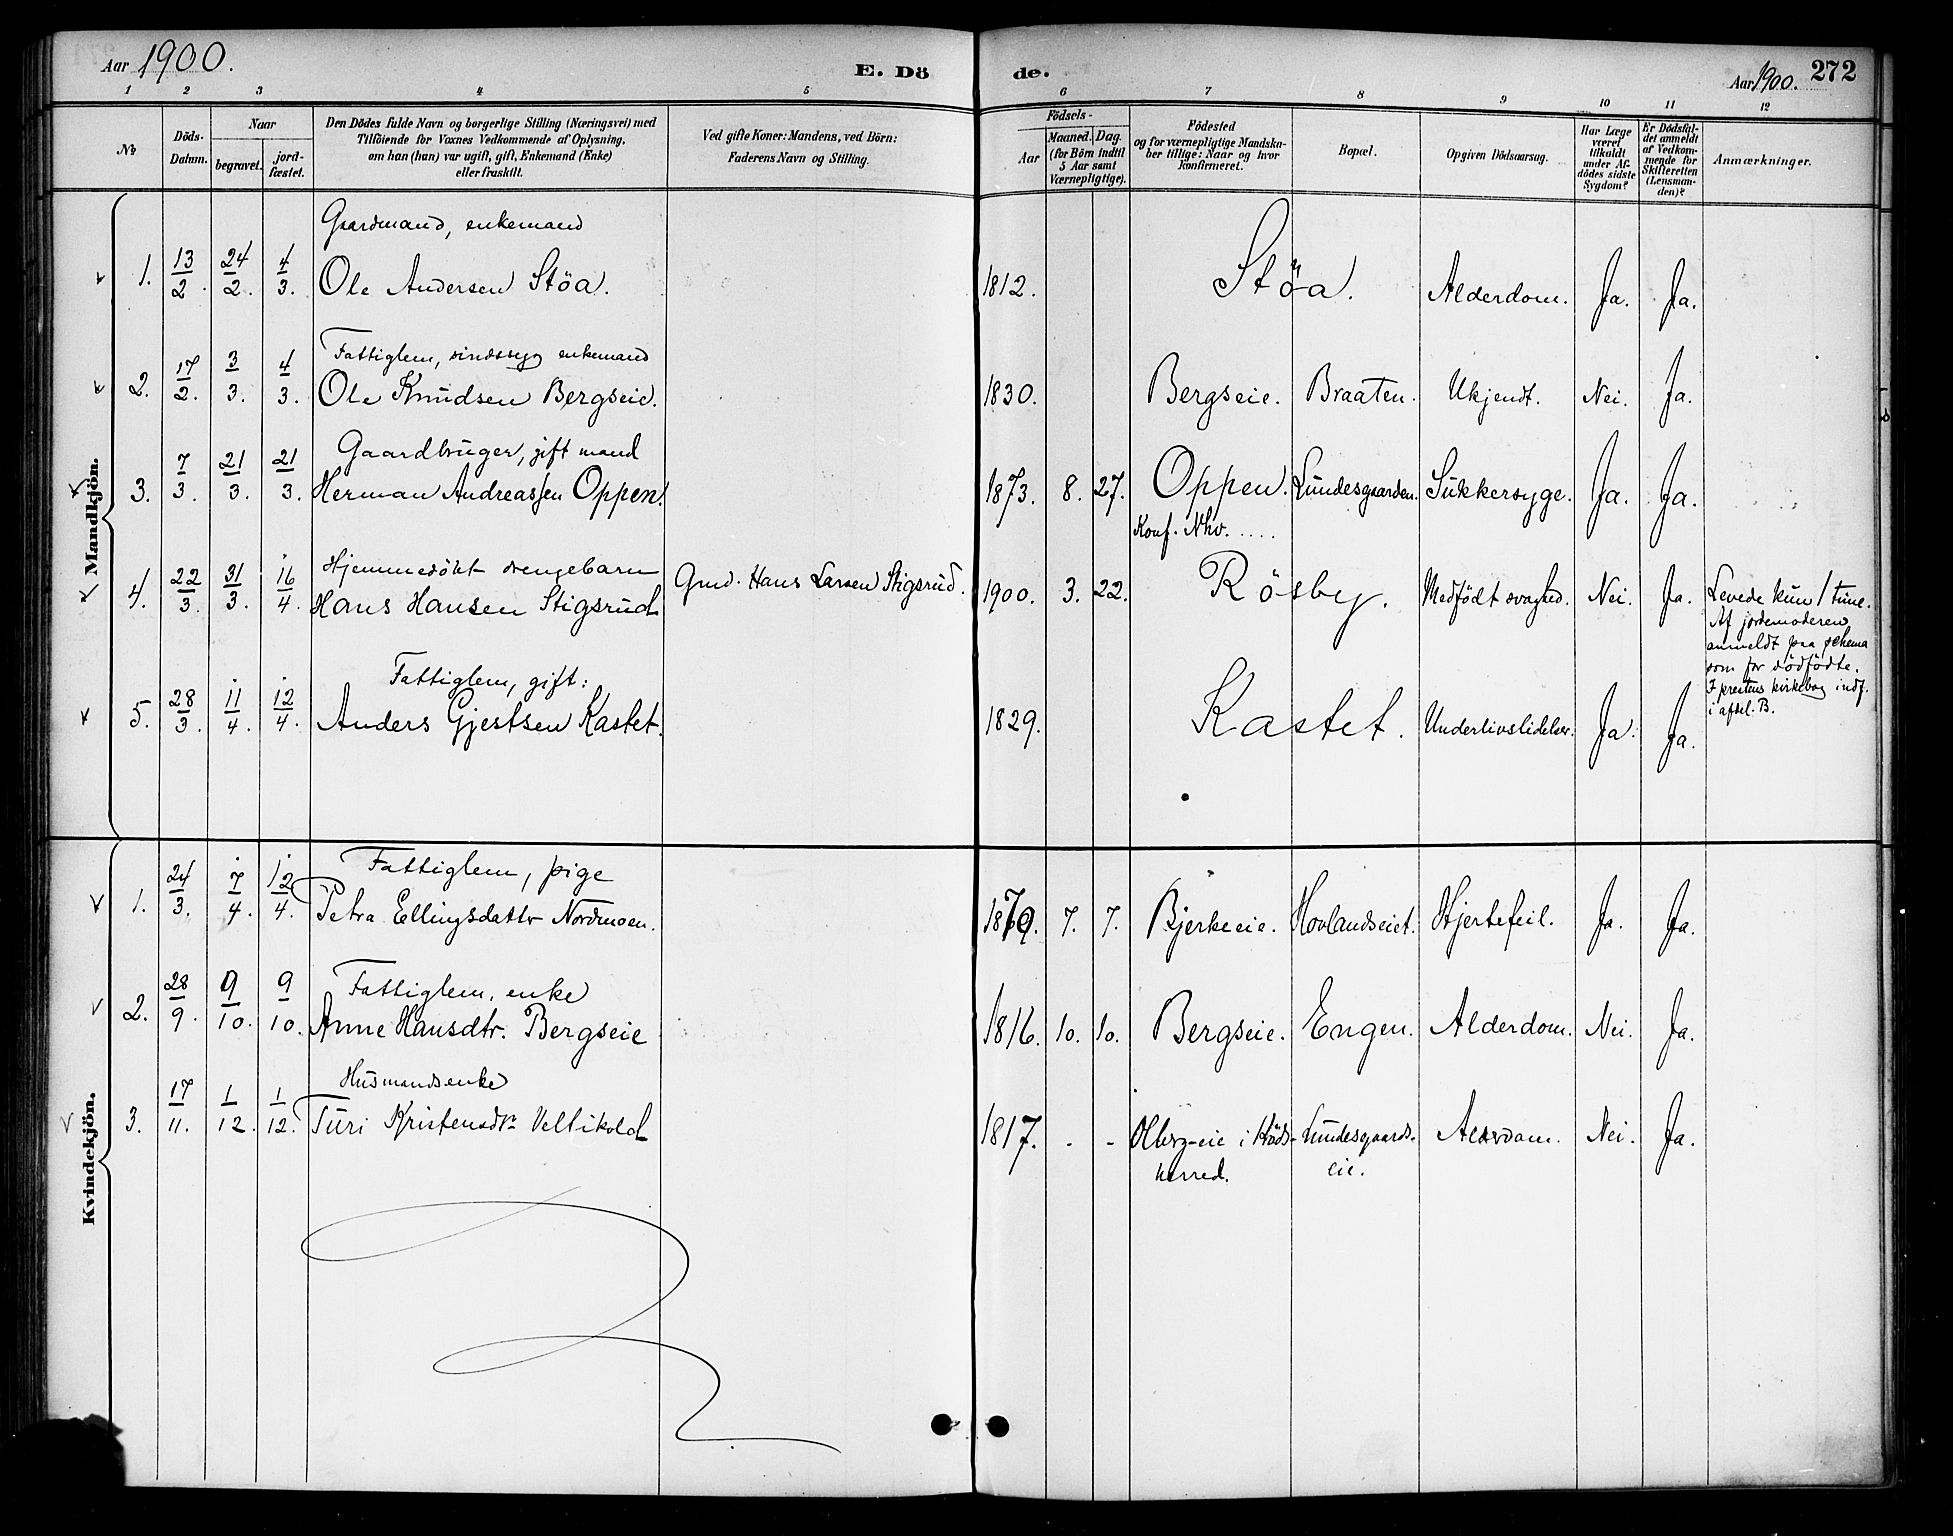 Aar 1900.
E. Dö
de.
Aar 1900.
272
1 2 3 4 5 6 7 8 9 10 11 12
№
Döds-Datum.
Naar
begravet.
jord-fæstet.
Den Dödes fulde Navn og borgerlige Stilling (Næringsvei) med
Tilföiende for Voxnes Vedkommende af Oplysning,
om han (hun) var ugift, gift, Enkemand (Enke)
eller fraskilt.
Ved gifte Koner: Mandens, ved Börn:
Faderens Navn og Stilling.
Födsels-
Aar
Maaned.
Dag.
(for Börn indtil
5 Aar samt
Værnepligtige).
Födested
og for værnepligtige Mandska-
ber tillige: Naar og hvor
konfirmeret.
Bopæl.
Opgiven Dödsaarsag.
Har Læge
været
tilkaldt
under Af-
dödes sidste
Sygdom?
Er Dödsfal-
det anmeldt
af Vedkom-
mende for
Skifteretten
(Lensman-
den)?
Anmærkninger.
Mandkjön.
Gaardmand, enkemand
1. 13/2. 24/2. 4/3. Ole Andersen Stöa. 1812. Stöa. Alderdom. Ja. Ja.
Fattiglem, sindssyg enkemand
2. 17/2. 3/3. 4/3. Ole Knudsen Bergseie. 1830. Bergseie. Braaten. Ukjendt. Nei. Ja.
Gaardbruger, gift mand
3. 7/3. 21/3. 21/3. Herman Andreassen Oppen. 1873. 8. 27. Oppen. Lundesgaarden. Sukkersyge. Ja. Ja.
Konf. Nhv. ....
Hjemmedöbt drengebarn
4. 22/3. 31/3. 16/4. Hans Hansen Stigsrud. Gmd. Hans Larsen Stigsrud. 1900. 3. 22. Rösby. Medfödt svaghed. Nei. Ja. Levede kun 1 time.
Af jordemoderen
anmeldt paa schema
som for dödfödte.
I prestens kirkebog indf.
i afdel. B.
Fattiglem, gift:
5. 28/3. 11/4. 12/4. Anders Gjestsen Kastet. 1829. Kastet. Underlivslidelser. Ja. Ja.
Kvindekjön.
Fattiglem, pige
1. 24/3. 7/4. 12/4. Petra Ellingsdatter Nordmoen. 7. 7. Bjerkeeie. Hovlandseiet. Hjertefeil. Ja. Ja.
Fattiglem, enke
2. 28/9. 9/10. 9/10. Anne Hansdtr. Bergseie 1816. 10. 10. Bergseie. Engen. Alderdom. Nei. Ja.
Husmandsenke
3. 17/11. 1/12. 1/12. Turi Kristensdtr. Veltikold 1817. - - Olberg-eie i Höds- Lundesgaards- Alderdom. Nei. Ja.
herred. eie.